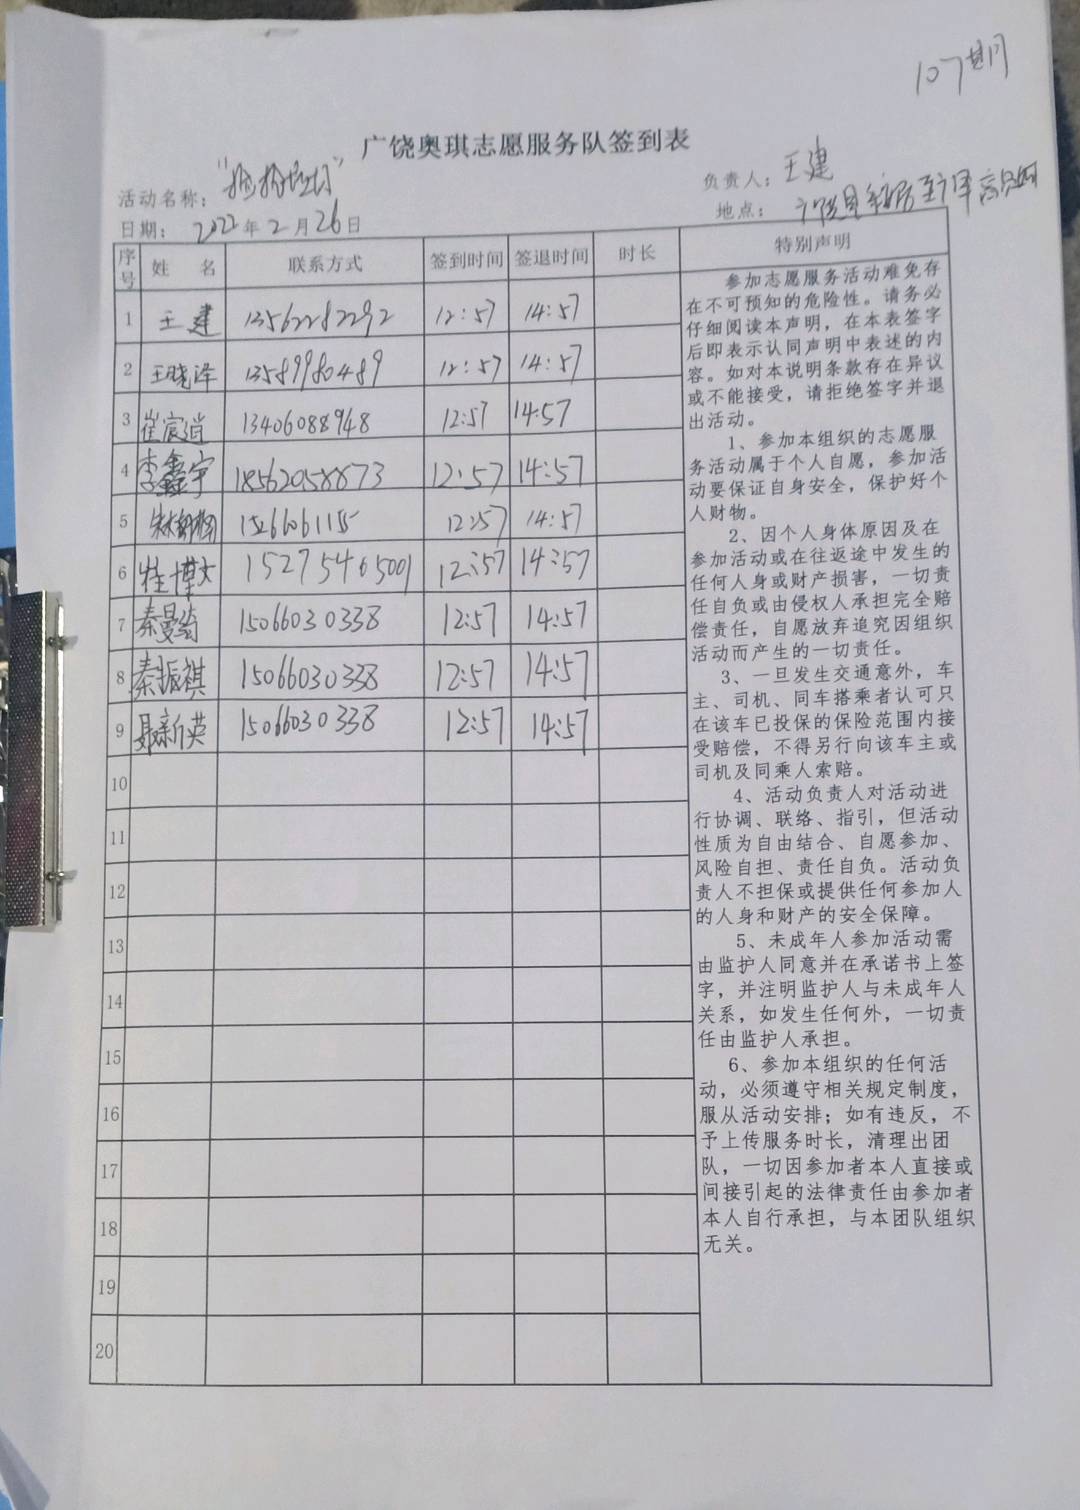 107期
广饶奥琪志愿服务队签到表
活动名称： 负责人：王建
日期：2022年2月26日 地点：
序号 姓 名 联系方式 签到时间 签退时间 时长 特别声明
1 王建 13562282292 12:57 14:57
2 王晓泽 13589980489 12:57 14:57
3 崔宸逍 13406088948 12:57 14:57
4 李鑫宇 18562058873 12:57 14:57
5 1526606115 12:57 14:57
6 博文 15275465001 12:57 14:57
7 秦曼 15066030338 12:57 14:57
8 秦振祺 15066030338 12:57 14:57
9 聂新英 15066030338 12:57 14:57
10
11
12
13
14
15
16
17
18
19
20
参加志愿服务活动难免存
在不可预知的危险性。请务必
仔细阅读本声明，在本表签字
后即表示认同声明中表述的内
容。如对本说明条款存在异议
或不能接受，请拒绝签字并退
出活动。
1、参加本组织的志愿服
务活动属于个人自愿，参加活
动要保证自身安全，保护好个
人财物。
2、因个人身体原因及在
参加活动或在往返途中发生的
任何人身或财产损害，一切责
任自负或由侵权人承担完全赔
偿责任，自愿放弃追究因组织
活动而产生的一切责任。
3、一旦发生交通意外，车
主、司机、同车搭乘者认可只
在该车已投保的保险范围内接
受赔偿，不得另行向该车主或
司机及同乘人索赔。
4、活动负责人对活动进
行协调、联络、指引，但活动
性质为自由结合、自愿参加、
风险自担、责任自负。活动负
责人不担保或提供任何参加人
的人身和财产的安全保障。
5、未成年人参加活动需
由监护人同意并在承诺书上签
字，并注明监护人与未成年人
关系，如发生任何外，一切责
任由监护人承担。
6、参加本组织的任何活
动，必须遵守相关规定制度，
服从活动安排；如有违反，不
予上传服务时长，清理出团
队，一切因参加者本人直接或
间接引起的法律责任由参加者
本人自行承担，与本团队组织
无关。